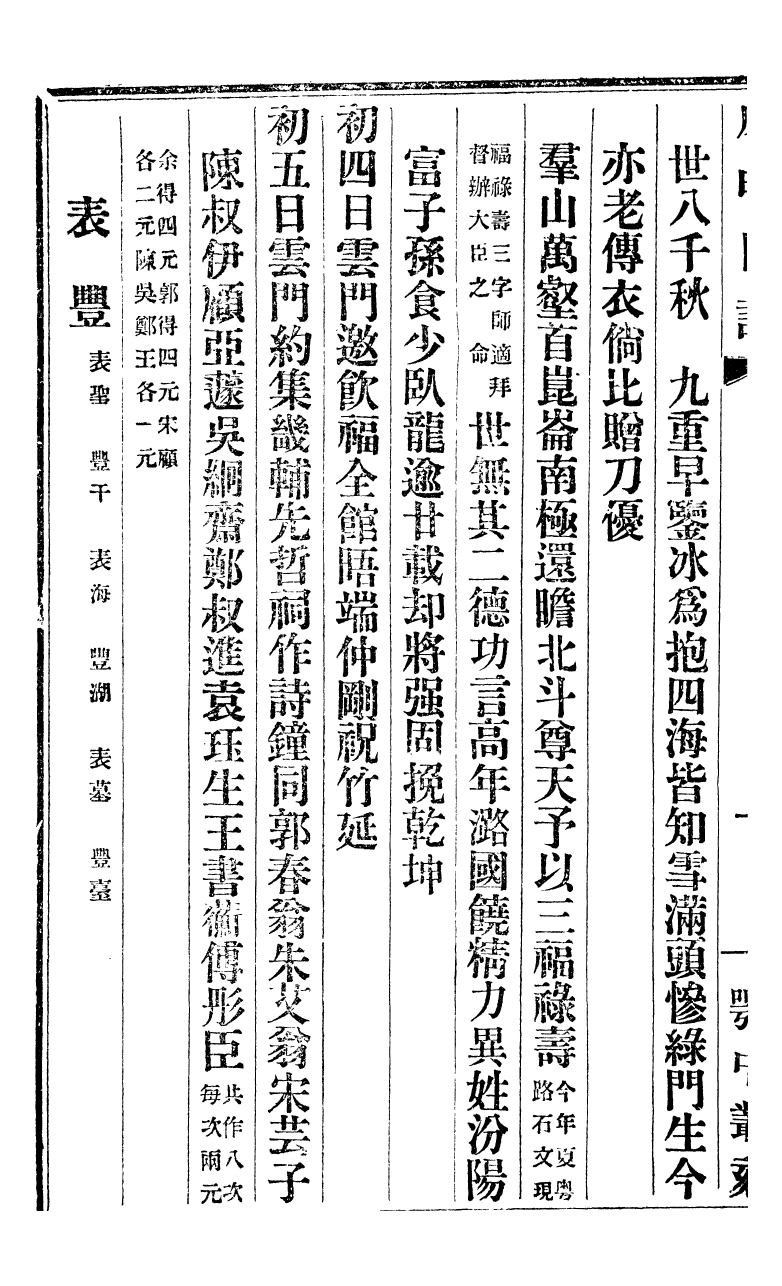 世八千秋　九重早鑒冰爲抱四海皆知雪滿頭慘綠門生今
亦老傳衣倘比贈刀優
羣山萬壑首崑崙南極還瞻北斗尊天予以三福祿壽今年夏粵路石文現
福祿壽三字師適拜督辦大臣之　命世無其二德功言高年潞國饒精力異姓汾陽
富子孫食少臥龍逾廿載却將强固挽乾坤
初四日雲門邀飲福全館晤端仲剛祝竹延
初五日雲門約集畿輔先哲祠作詩鐘同郭春翁朱艾翁宋芸子
陳叔伊顧亞蘧吳絅齋鄭叔進袁珏生王書衡傅彤臣共作八次每次兩元
余得四元郭得四元宋顧各二元陳吳鄭王各一元
表　豐　表聖　豐干　表海　豐湖　表墓　豐臺